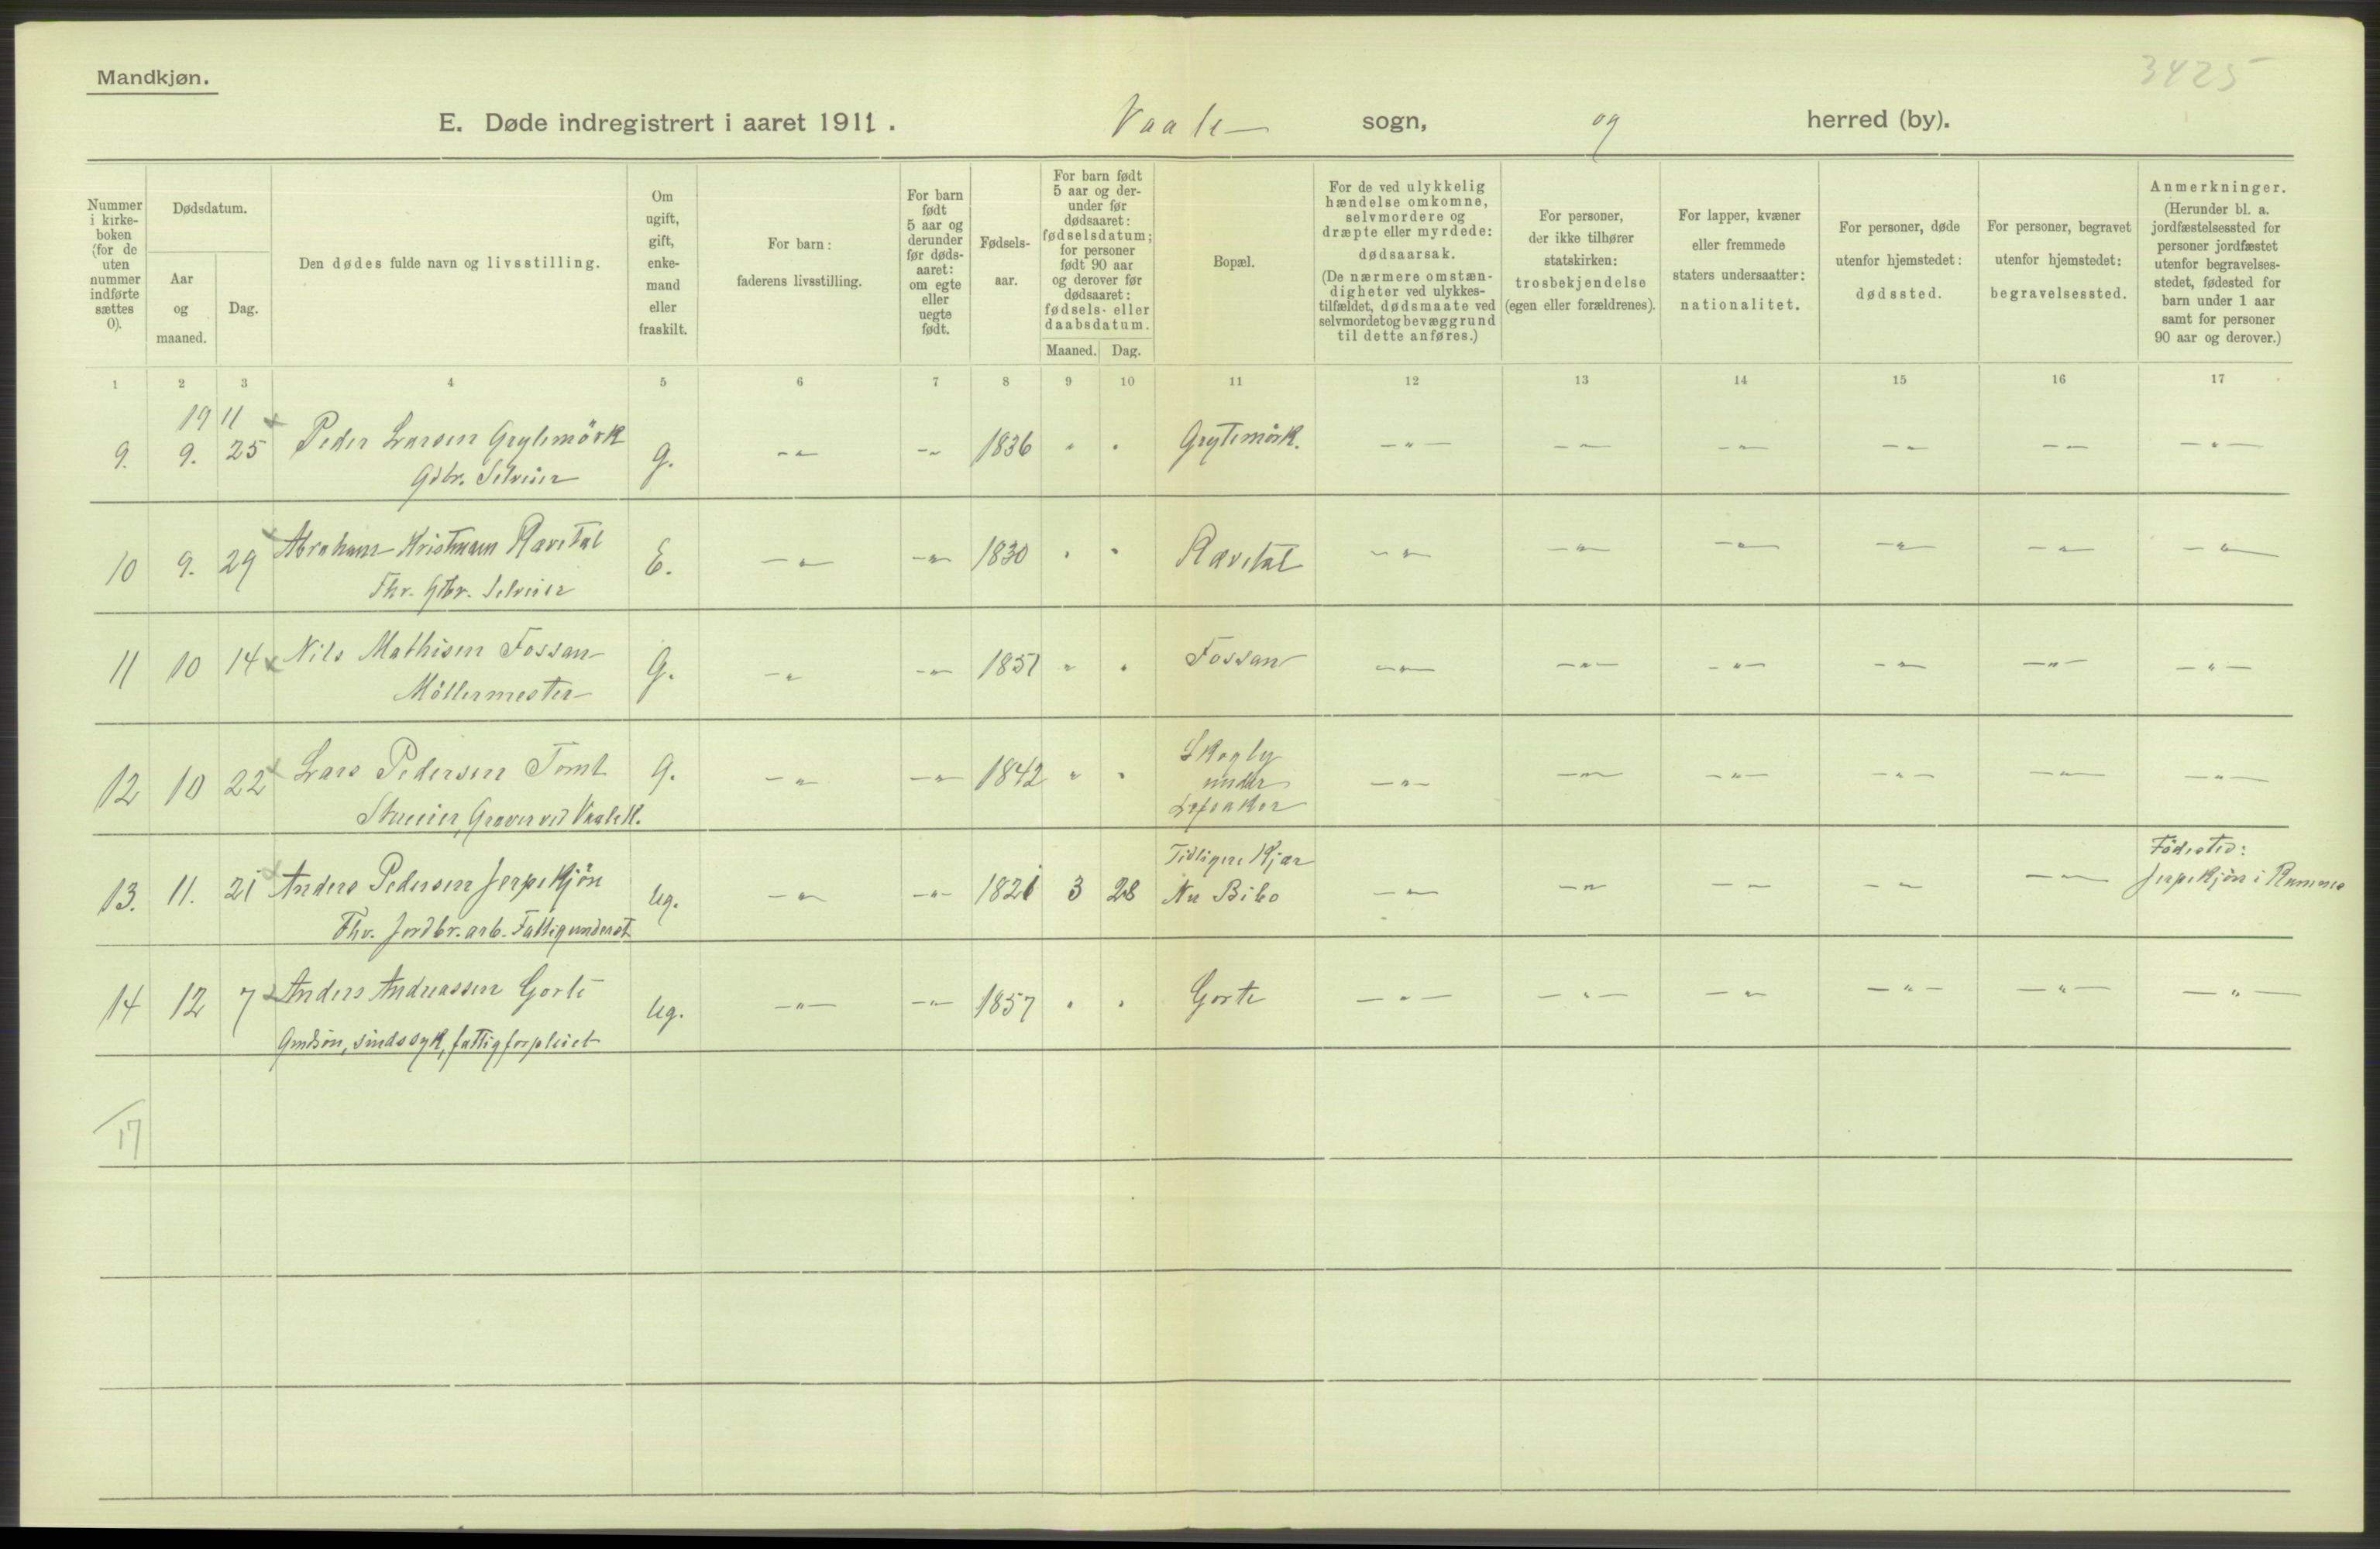 Mandkjøn.
3425
E. Døde indregistrert i aaret 1911. Vaale sogn, og herred (by).
Nummer i kirkeboken (for de uten nummer indførte sættes 0).
Dødsdatum.
Aar og maaned.
Dag.
Den dødes fulde navn og livsstilling.
Om ugift, gift, enkemand eller fraskilt.
For barn: faderens livsstilling.
For barn født 5 aar og derunder før dødsaaret: om egte eller uegte født.
Fødselsaar.
For barn født 5 aar og derunder før dødsaaret: fødselsdatum; for personer født 90 aar og derover før dødsaaret: fødsels- eller daabsdatum.
Maaned. Dag.
Bopæl.
For de ved ulykkelig hændelse omkomne, selvmordere og dræpte eller myrdede: dødsaarsak.
(De nærmere omstændigheter ved ulykkestilfældet, dødsmaate ved selvmordet og bevæggrund til dette anføres.)
For personer, der ikke tilhører statskirken: trosbekjendelse (egen eller forældrenes).
For lapper, kvæner eller fremmede staters undersaatter: nationalitet.
For personer, døde utenfor hjemstedet: dødssted.
For personer, begravet utenfor hjemstedet: begravelsessted.
Anmerkninger.
(Herunder bl. a. jordfæstelsessted for personer jordfæstet utenfor begravelsesstedet, fødested for barn under 1 aar samt for personer 90 aar og derover.)
1 2 3 4 5 6 7 8 9 10 11 12 13 14 15 16 17
1911
9. 9. 25 Peder Larsen Grytemörk G. -"- -"- 1836 " " Grytemörk. -"- -"- -"- -"- -"- -"-
Gdbr. Selveier
10 9. 29 Abraham Kristensen Ravetal E. -"- -"- 1830 " " Ravetal -"- -"- -"- -"- -"- -"-
Fhv. Gbr. Selveier
11 10 14 Nils Mathisen Fossan G. -"- -"- 1851 " " Fossan -"- -"- -"- -"- -"- -"-
Möllermester
12 10 22 Lars Pedersen Tomt G. -"- -"- 1842 " " Skogly under -"- -"- -"- -"- -"- -"-
Graver ved Vaale K.
13. 11. 21 Anders Pedersen Jerpekjön Ug. -"- -"- 1821 3 28 Tidligere Kjær Nu Bibo -"- -"- -"- -"- -"- Födested: Jerpekjön i Ramnes
Fhv. Jordbr. arb. Fattigunderst.
14 12 7 Anders Andreassen Gorte Ug. -"- -"- 1857 " " Gorte -"- -"- -"- -"- -"- -"-
Gmdsön, sindssyk, fattigforpleiet
17